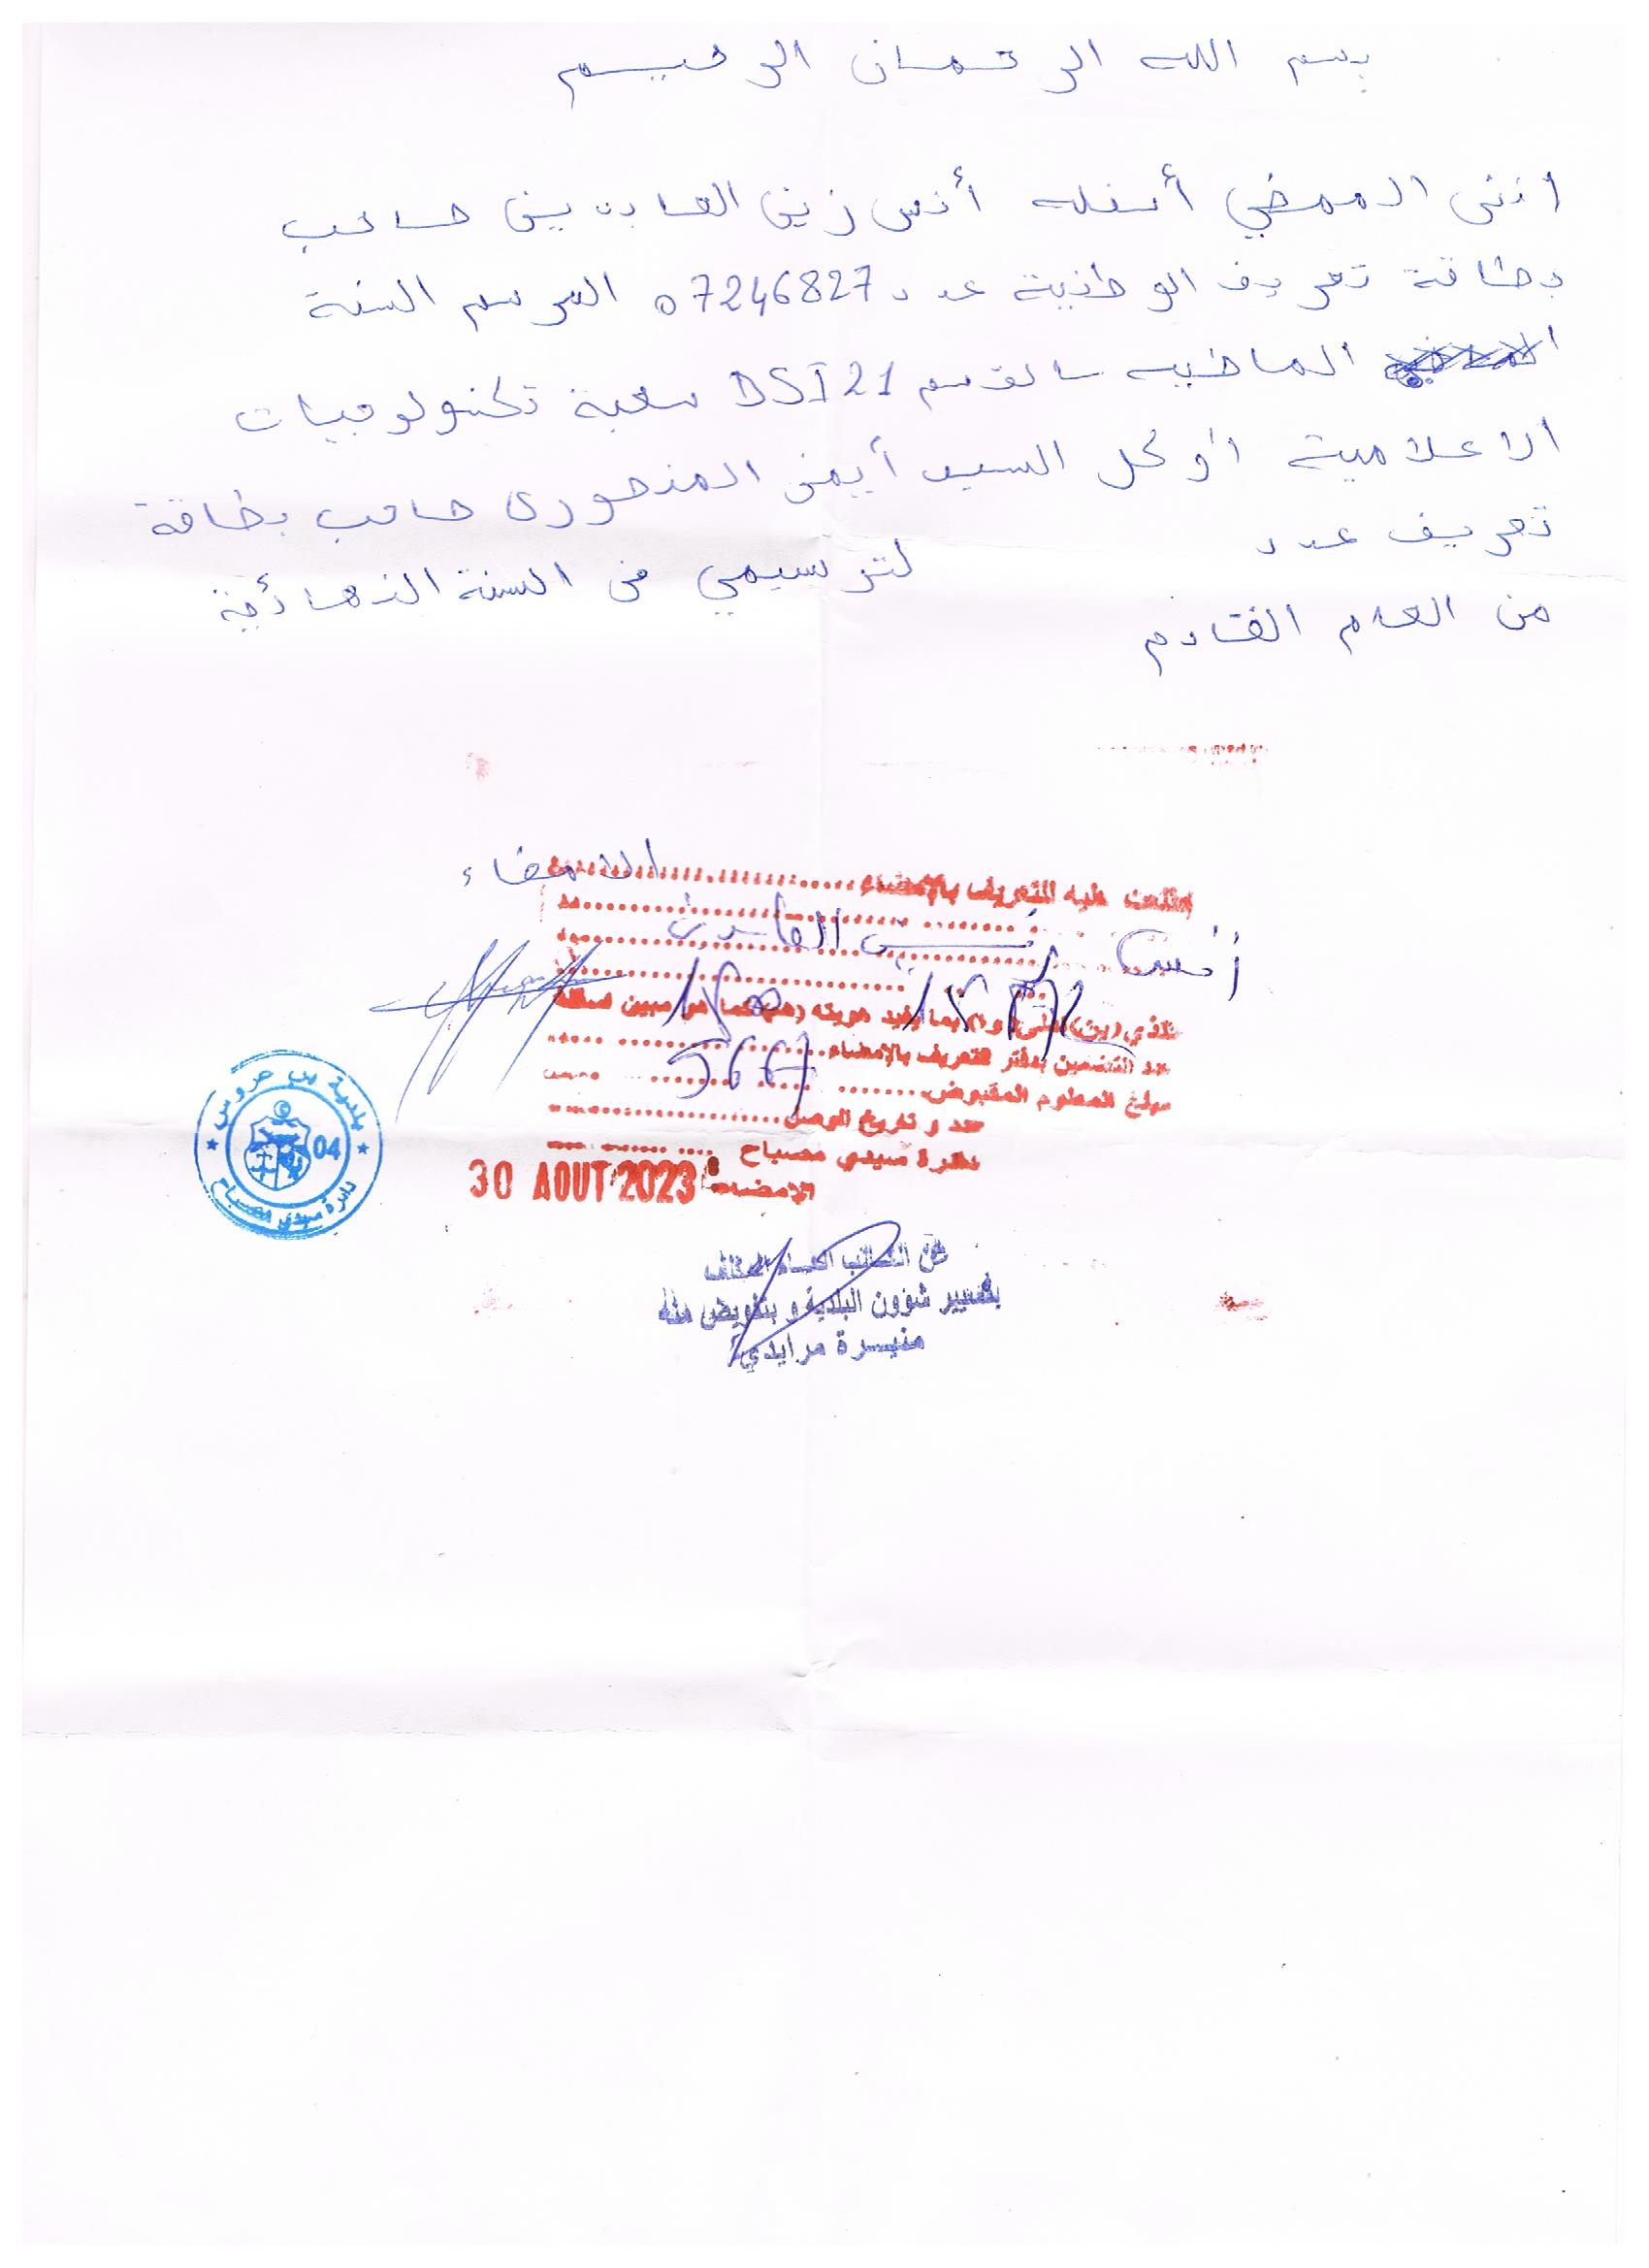 بسم الله الرحمان الرحيم
انني الممضي أسفله أنس زين العابدين صاحب
بطاقة تعريف الوطنية عدد 07246827 المرسم السنة
الماضيه بالقسم DSI21 شعبة تكنولوجيات
الاعلامية أوكل السيد أيمن المنصوري صاحب بطاقة
تعريف عدد لترسيمي في السنة النهائية
من العام القادم
الامضاء
اطلعت عليه للتعريف بالإمضاء
أنس زين العابدين
عدد التضمين بدفتر التعريف بالإمضاء
5667
مبلغ المعلوم المقبوض
عدد و تاريخ الوصل
دائرة سيدي مصباح
30 AOUT 2023 الإمضاء
بلدية بن عروس
04
دائرة سيدي مصباح
عن الكاتب العام المكلف
بتسيير شؤون البلدية و بتفويض منه
منيرة مرايدي